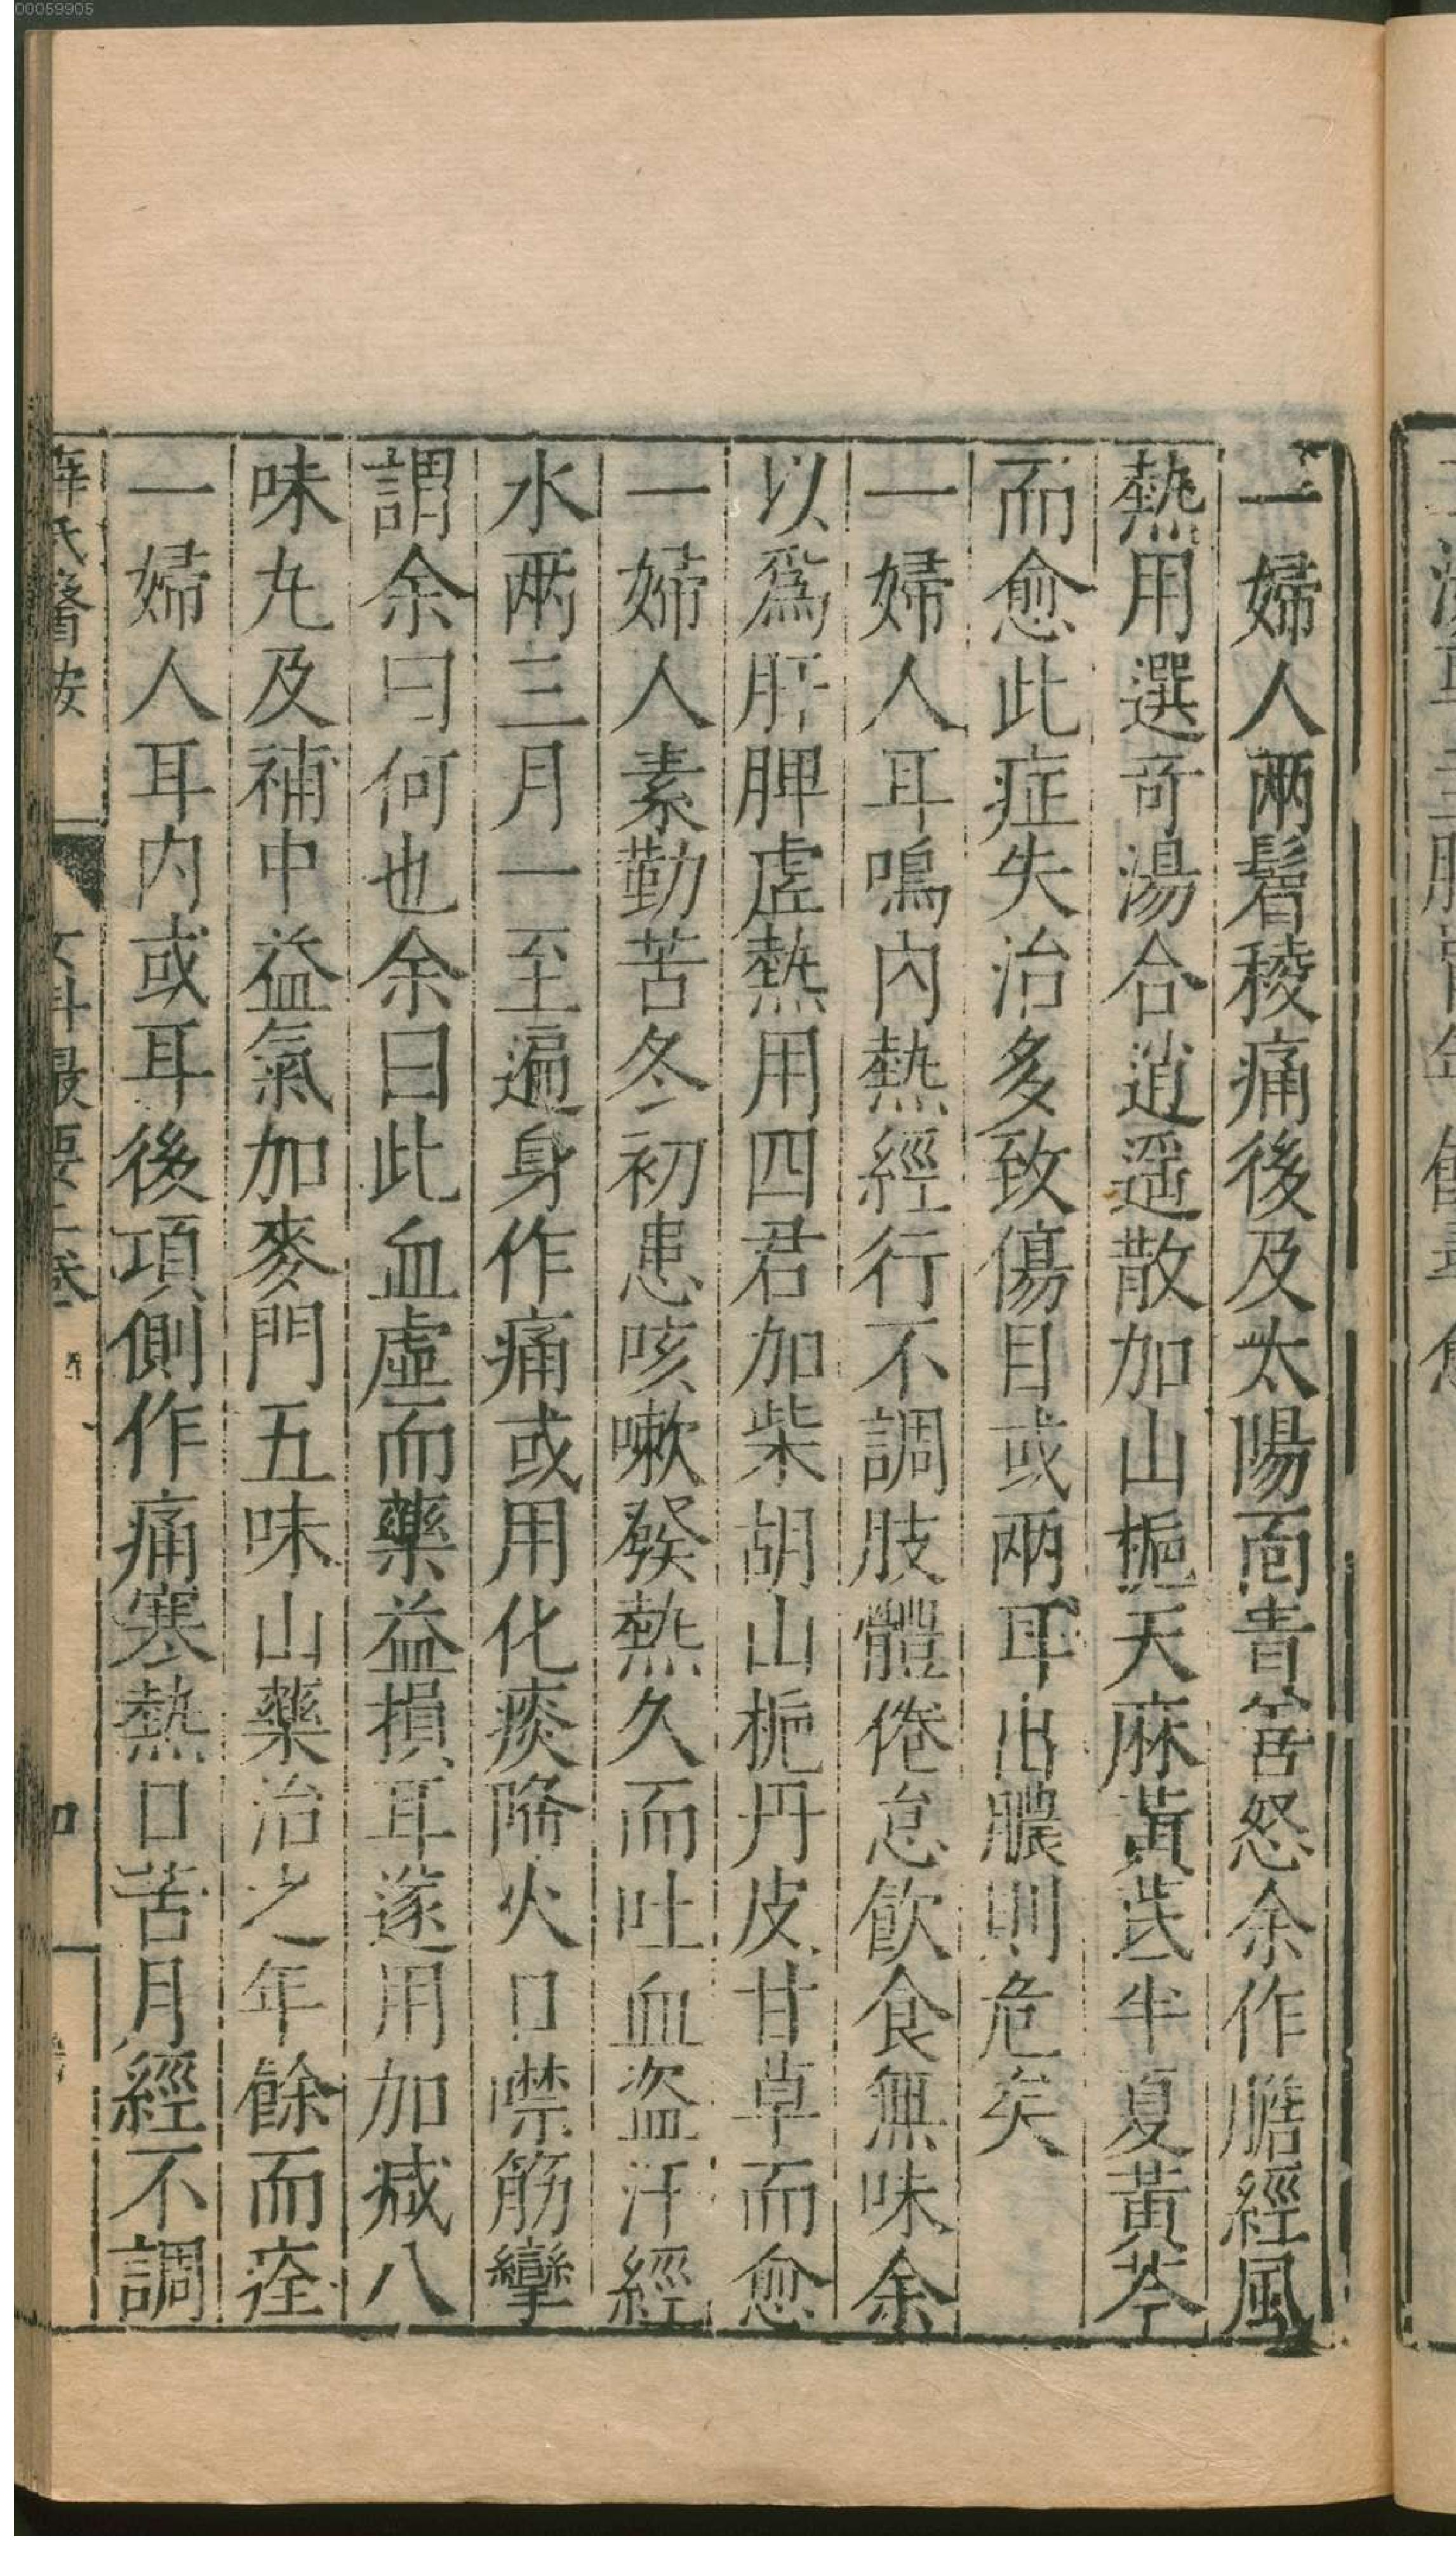 00059905
一婦人兩鬢稜痛後及太陽面青善怒余作膽經風
熱用選竒湯合逍遥散加山梔天麻黃芪半夏黃芩
而愈此症失治多致傷目或兩耳出膿則危矣
一婦人耳鳴内熱經行不調肢體倦怠飲食無味余
以爲肝脾虚熱用四君加柴胡山梔丹皮甘草而愈
一婦人素勤苦冬初患咳嗽發熱久而吐血盗汗經
水兩三月一至遍身作痛或用化痰降火口噤筋攣
謂余曰何也余曰此血虛而藥益損耳遂用加减八
味丸及補中益氣加麥門五味山藥治之年餘而痊
一婦人耳内或耳後項側作痛寒熱口苦月經不調
薛氏醫按
女科最要上卷